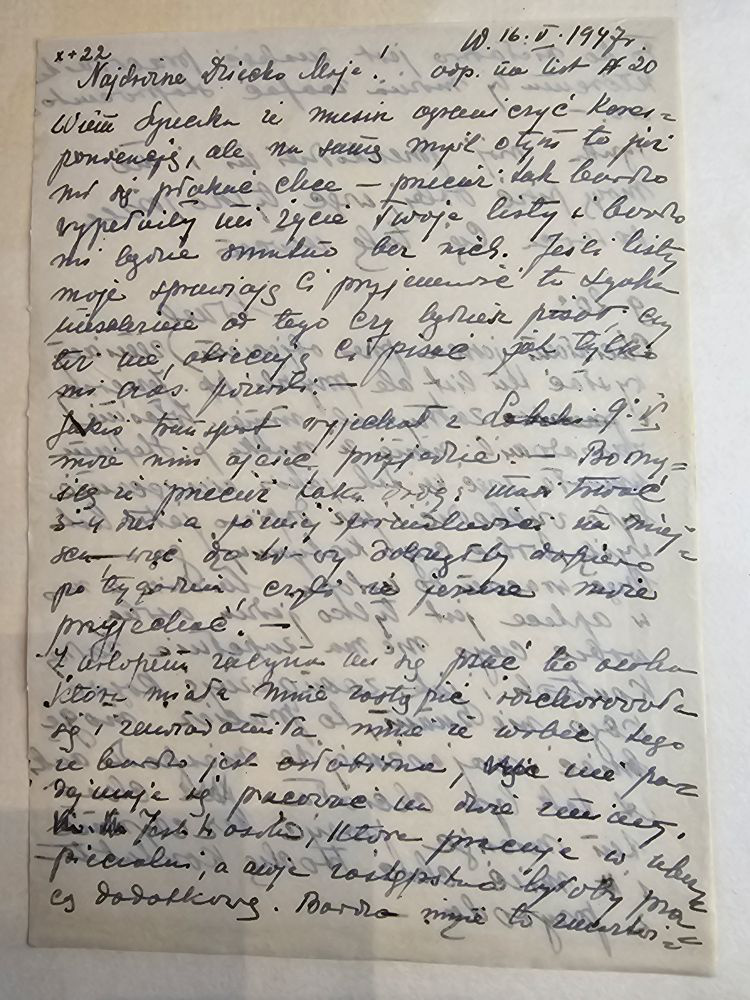 x+22
W. 16.V.1947r.
Najdroższe Dziecko Moje! odp. na list № 20
Wiem Syneczku że musisz ograniczyć kores=
pondencję, ale na samą myśl o tym to już
mi się płakać chce — przecież tak bardzo
wypełniły mi życie Twoje listy i bardzo
mi będzie smutno bez nich. Jeśli listy
moje sprawiają Ci przyjemność to
niezależnie od tego czy będziesz pisał czy
też nie, obiecuję Ci pisać jak tylko
mi czas pozwoli. —
Jakiś transport wyjechał z 9.V
może nim ojciec przyjedzie. — Bo my=
ślę że przecież taka droga musi trwać
3-4 dni a później formalności na miej=
scu — więc do W-wy dobrnąłby dopiero
po tygodniu, czyli że jeszcze może
przyjechać! —
Z urlopem zaczyna mi się psuć bo osoba
która miała mnie zastąpić, rozchorowała
się i zawiadomiła mnie że wobec tego
że bardzo jest osłabiona, więc nie po=
dejmuje się pracować na dwie zmiany.
Jest to osoba, która pracuje w ubez=
pieczalni, a moje zastępstwo byłoby pra=
cą dodatkową. Bardzo mnie to zmartwi=